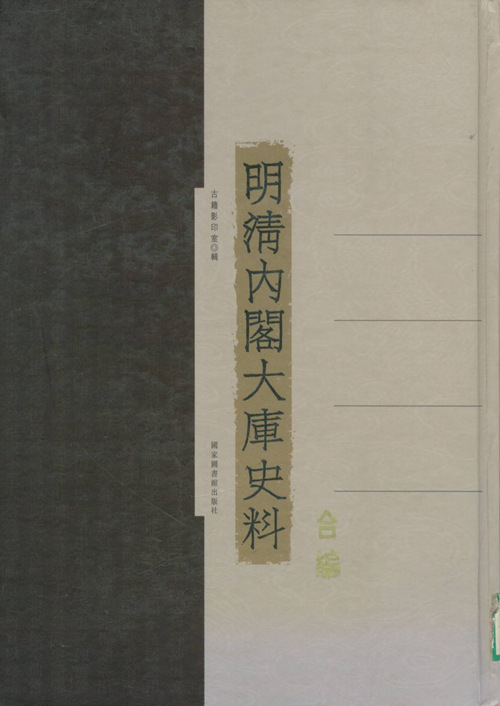 明清内閣大庫史料
合編
古籍影印室◎輯
國家圖書館出版社